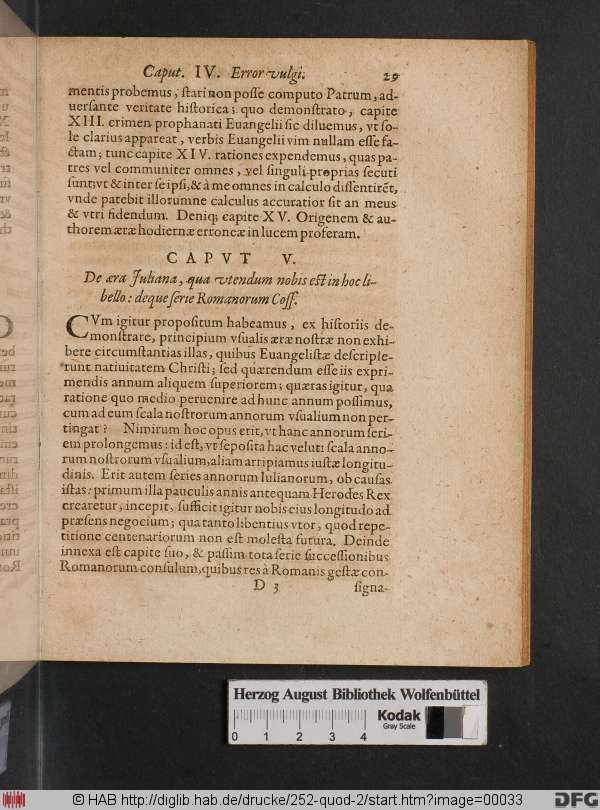 Caput. IV. Error vulgi. 29
mentis probemus, ſtari non poſſe computo Patrum, ad-
uerſante veritate hiſtorica; quo demonſtrato, capite
XIII. crimen prophanati Euangelii ſic diluemus, vt ſo-
le clarius appareat, verbis Euangelii vim nullam eſſe fa-
ctam; tunc capite XIV. rationes expendemus, quas pa-
tres vel communiter omnes, vel ſinguli proprias ſecuti
ſunt; vt & inter ſe ipſi, & à me omnes in calculo diſſentirēt,
vnde patebit illorumne calculus accuratior ſit an meus
& vtri fidendum. Deniq; capite XV. Origenem & au-
thorem æræ hodiernæ erroneæ in lucem proferam.
CAPVT V.
De æra Juliana, qua vtendum nobis eſt in hoc li-
bello: deque ſerie Romanorum Coſſ.
CVm igitur propoſitum habeamus, ex hiſtoriis de-
monſtrare, principium vſualis æræ noſtræ non exhi-
bere circumſtantias illas, quibus Euangeliſtæ deſcripſe-
runt natiuitatem Chriſti; ſed quærendum eſſe iis expri-
mendis annum aliquem ſuperiorem; quæras igitur, qua
ratione quo medio peruenire ad hunc annum poſſimus,
cum ad eum ſcala noſtrorum annorum vſualium non per-
tingat? Nimirum hoc opus erit, vt hanc annorum ſeri-
em prolongemus: id eſt, vt ſepoſita hac veluti ſcala anno-
rum noſtrorum vſualium, aliam arripiamus iuſtæ longitu-
dinis. Erit autem ſeries annorum Iulianorum, ob cauſas
iſtas: primum illa pauculis annis antequam Herodes Rex
crearetur, incepit, ſufficit igitur nobis eius longitudo ad
præſens negocium; qua tanto libentius vtor, quod repe-
titione centenariorum non eſt moleſta futura. Deinde
innexa eſt capite ſuo, & paſſim tota ſerie ſucceſſionibus
Romanorum conſulum, quibus res à Romanis geſtæ con-
D 3 ſigna-
Herzog August Bibliothek Wolfenbüttel
0 1 2 3 4
Kodak
Gray Scale
© HAB http://diglib.hab.de/drucke/252-quod-2/start.htm?image=00033
DFG